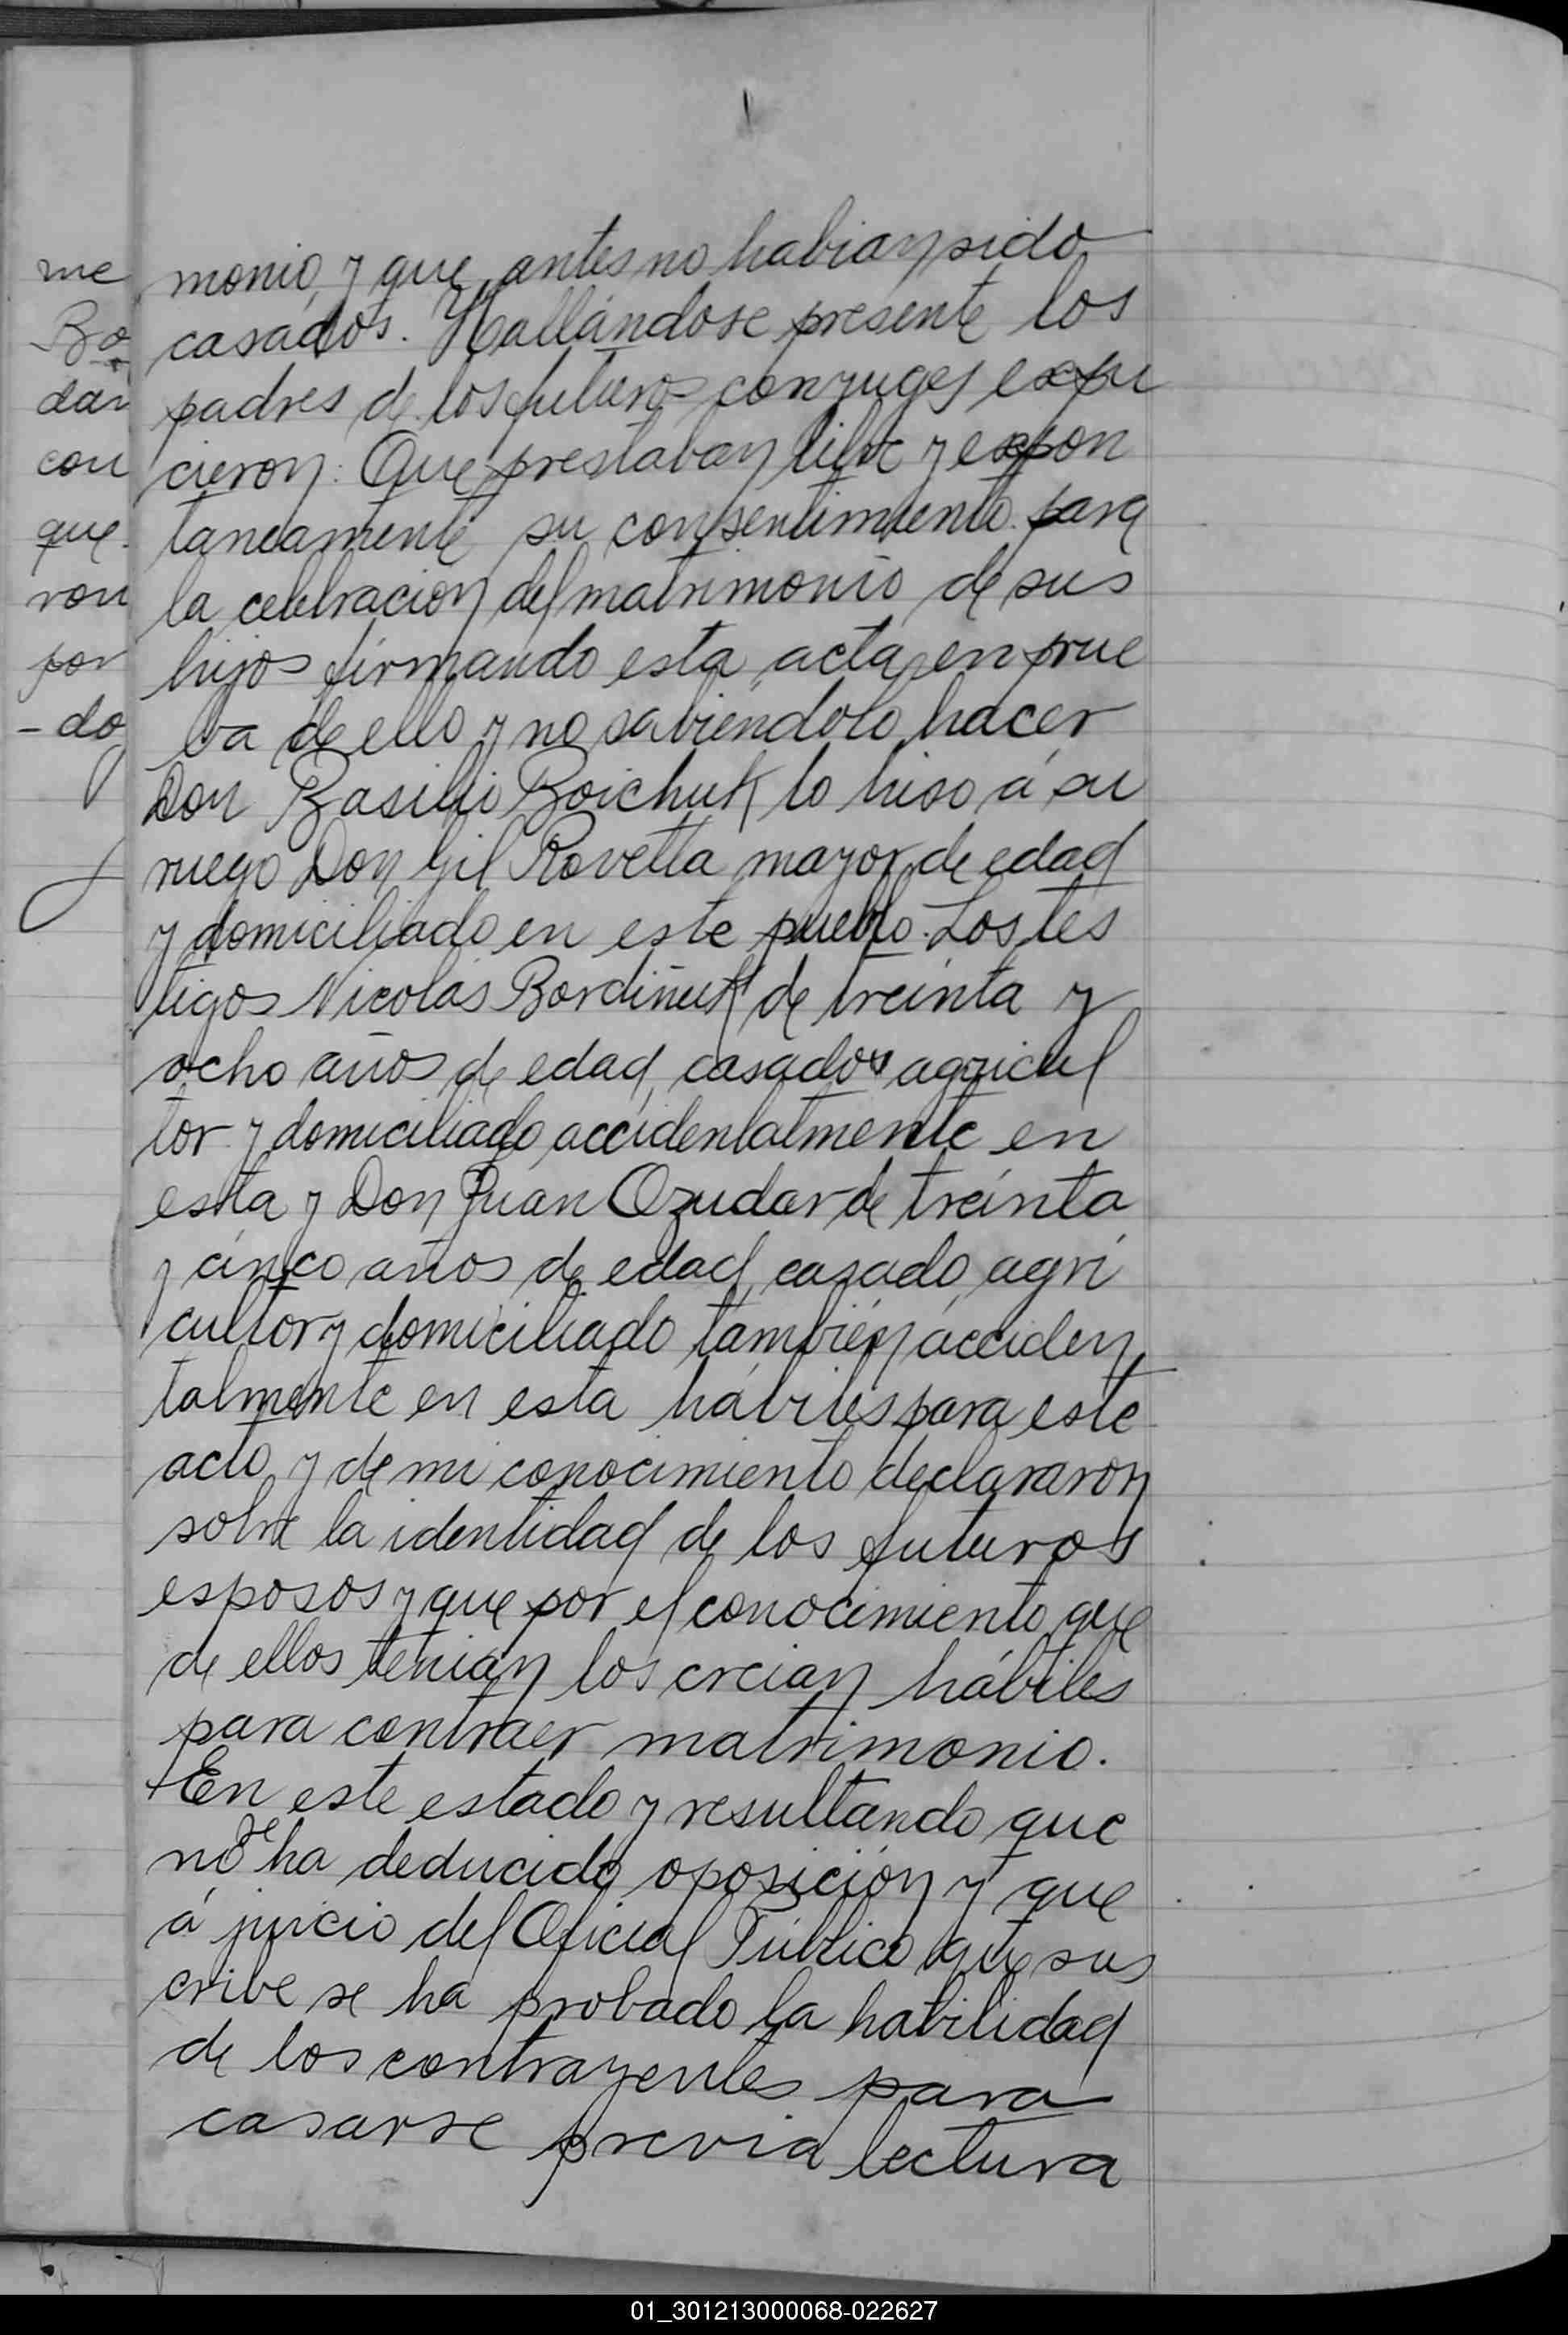 monio, y que antes no habian sido
casados. Hallándose presente los
padres de los futuros conyuges expu
cieron: Que prestaban libre y expon
taneamente su consentimiento para
la celebracion del matrimonio de sus
hijos firmando esta acta en prue
ba de ello y no sabiéndolo hacer
Don Basilio Boichuk lo hiso á su
ruego Don Gil Rovetta mayor de edad
y domiciliado en este pueblo. Los tes
tigos Nicolás Bordiñuk de treinta y
ocho años de edad, casado agricul
tor y domiciliado accidentalmente en
esta y Don Juan Ozudar de treinta
y cinco años de edad, casado, agri
cultor y domiciliado también acciden
talmente en esta hábiles para este
acto y de mi conocimiento declararon
sobre la identidad de los futuros
esposos y que por el conocimiento que
de ellos tenian los creian hábiles
para contraer matrimonio.
En este estado y resultando que
no se ha deducido oposición y que
á juicio del Oficial Público que sus
cribe se ha probado la habilidad
de los contrayentes para
casarse previa lectura
me
Bo
dar
con
que
ron
por
- do
01_301213000068-022627